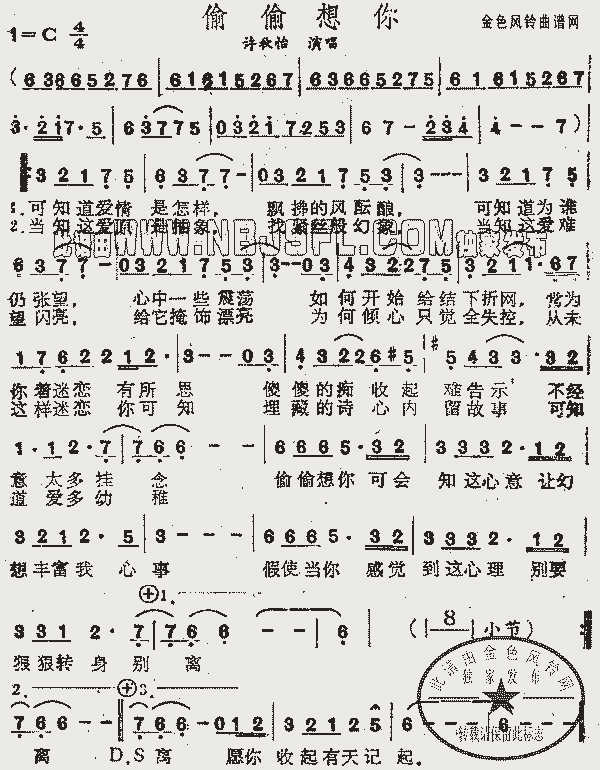 偷偷想你
金色风铃曲谱网
1=C 4/4
许秋怡 演唱
( 63665276 | 61615276 | 63665275 | 6161512576
3·217·5 | 63775 | 03217253 | 67-234 | 4--7 )
32175 | 6377- | 0321753 | 3--- | 32175
1.可知道爱情 是怎样, 飘拂的风酝酿, 可知道为谁
2.当知这爱 抽象, 找 丝般幻象, 当知这爱难
WWW.NBJSFL.COM
6377- | 0321753 | 3--03 | 432275 | 3211·67
仍张望, 心中一些震荡 如何开始给结下折网, 常为
望闪亮, 给它掩饰漂亮 为何倾心只觉全失控, 从未
1762212· | 3--03 | 43226#5 | #5433·32
你着迷恋 有所思 傻傻的痴 收起 难告示 不经
这样迷恋 你可知 埋藏的诗 心内 留故事 可知
1·12·7 | 766-- | 6665·32 | 3332·12
意 太多挂念 偷偷想你 可会 知这心意 让幻
道 爱多幼稚
3212·5 | 3--- | 6665·32 | 3332·12
想丰富我 心事 假使当你 感觉 到这心理 别要
1.
3312·7 | 7766 | -- | 6 ( | 8 | 小节)
狠狠转 身 别 离
2. 3.
766-- | 7766 | --012 | 32125 | 6--- | 6--
离 D.S离 愿你 收起有天记 起.
此谱由金色风铃网
独家发布
转载请保留此标志